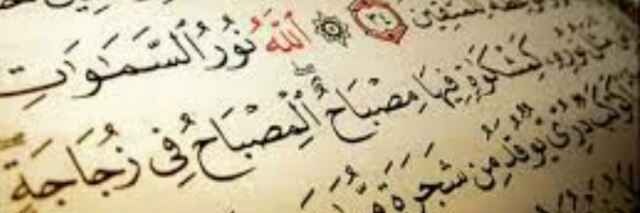 لِّلْمُتَّقِينَ ٣٤ ۞ ٱللَّهُ نُورُ ٱلسَّمَٰوَٰتِ
نُورِهِۦ كَمِشْكَوٰةٍ فِيهَا مِصْبَاحٌ ۖ ٱلْمِصْبَاحُ فِى زُجَاجَةٍ ۖ
كَوْكَبٌ دُرِّىٌّ يُوقَدُ مِن شَجَرَةٍ